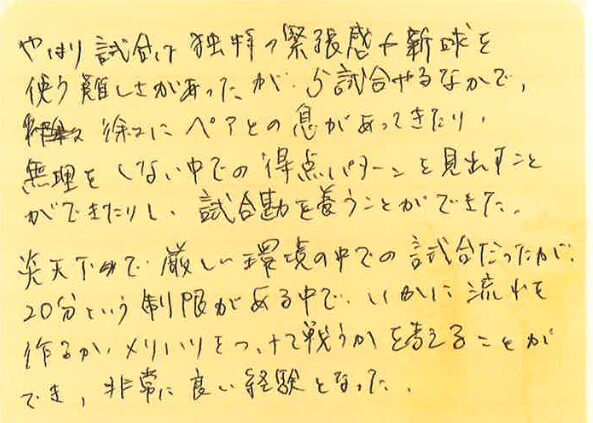 やはり試合は独特の緊張感や新球を
使う難しさがあったが、5試合やるなかで、
徐々にペアとの息があってきたり、
無理をしない中での得点パターンを見出すこと
ができたりし、試合勘を養うことができた。
炎天下の中で厳しい環境の中での試合だったが、
20分という制限がある中で、いかに流れを
作るか、メリハリをつけて戦うかを考えることが
でき、非常に良い経験となった。